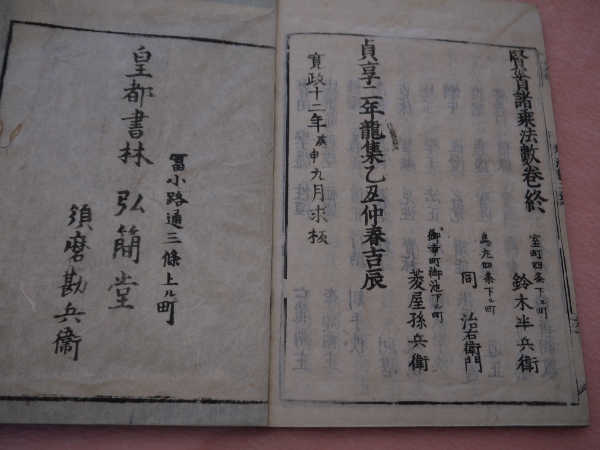 賢首諸乗法數卷終
室町四条下ル町
鈴木半兵衛
烏丸四条下ル町
同 治右衛門
御幸町御池下ル町
菱屋孫兵衛
貞享二年龍集乙丑仲春吉辰
寛政十二年庚申九月求板
皇都書林 弘簡堂
冨小路通三條上ル町
須磨勘兵衛